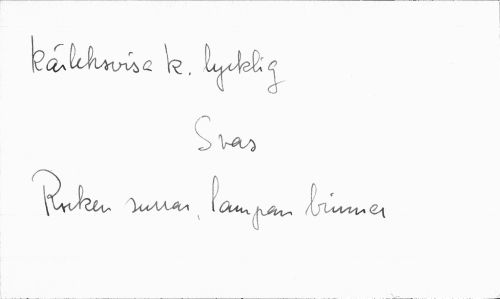 Kärleksvisa k. lycklig
Svas
Rocken surrar, lampan brinner